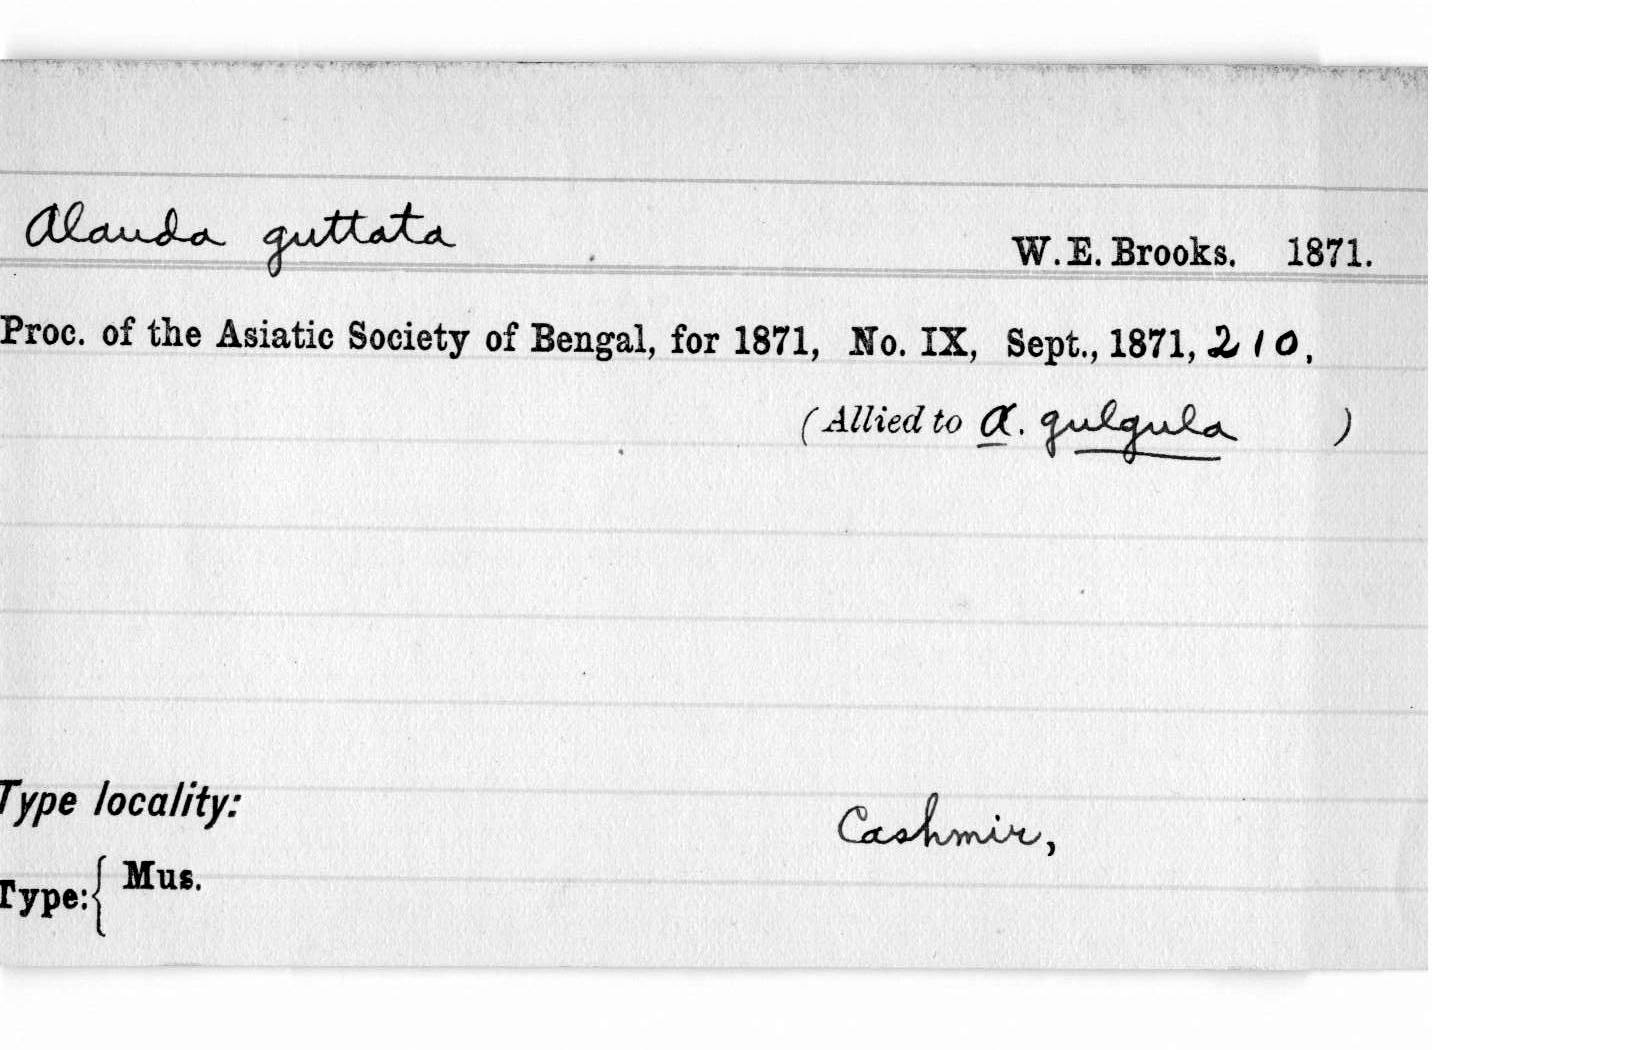 Alauda guttata
W. E. Brooks. 1871.
Proc. of the Asiatic Society of Bengal, for 1871, No. IX, Sept., 1871, 210.
(Allied to A. gulgula )
Type locality: Cashmir,
Type: { Mus.